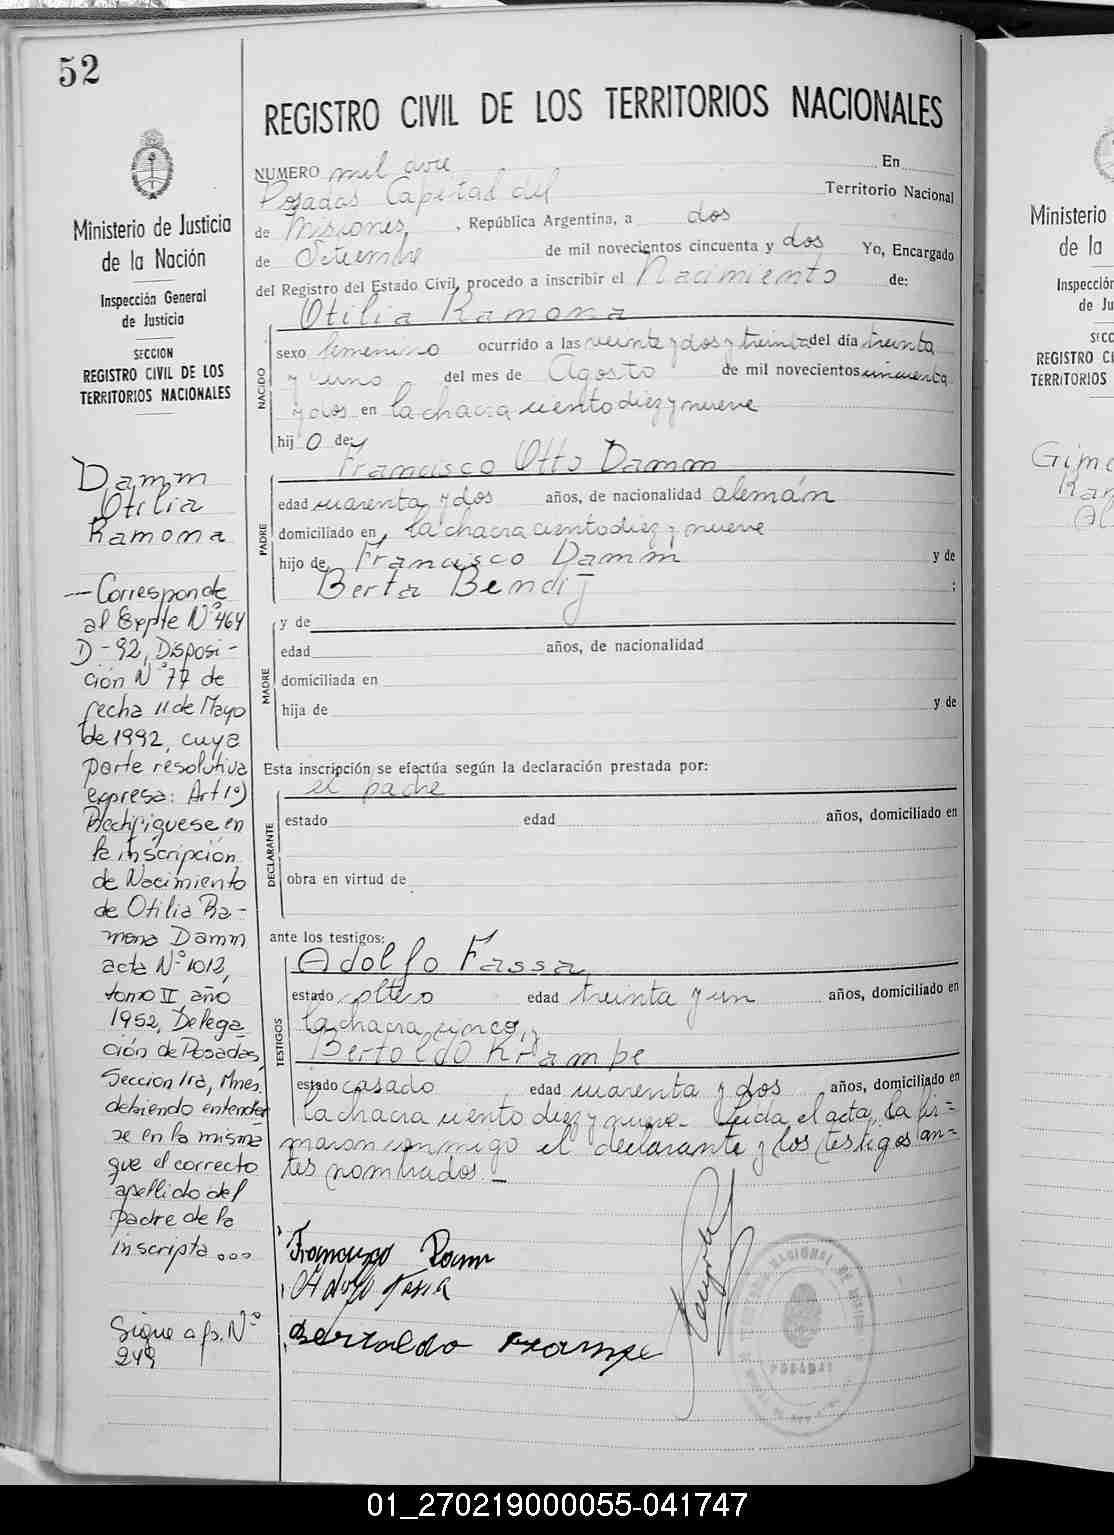 52
REGISTRO CIVIL DE LOS TERRITORIOS NACIONALES
NUMERO mil doce En
Posadas Capital del Territorio Nacional
de Misiones, República Argentina, a dos
de Setiembre de mil novecientos cincuenta y dos Yo, Encargado
del Registro del Estado Civil, procedo a inscribir el Nacimiento de:
Otilia Ramona
NACIDO
sexo femenino ocurrido a las veinte y dos y treinta del día treinta
y uno del mes de Agosto de mil novecientos cincuenta
y dos en la chacra ciento diez y nueve
hij o de:
Francisco Otto Damm
PADRE
edad cuarenta y dos años, de nacionalidad alemán
domiciliado en la chacra ciento diez y nueve
hijo de Francisco Damm y de
Berta Bendij ;
MADRE
y de
edad años, de nacionalidad
domiciliada en
hija de y de
Esta inscripción se efectúa según la declaración prestada por:
el padre
DECLARANTE
estado edad años, domiciliado en
obra en virtud de
ante los testigos:
Adolfo Fassa,
TESTIGOS
estado soltero edad treinta y un años, domiciliado en
la chacra cinco, y
Bertoldo Krampe
estado casado edad cuarenta y dos años, domiciliado en
la chacra ciento diez y nueve. Leida el acta, la fir=
maron conmigo el declarante y los testigos an=
tes nombrados. _
Francisco Damm
Adolfo Fassa
Bertoldo Krampe
POSADAS
Ministerio de Justicia
de la Nación
Inspección General
de Justicia
SECCION
REGISTRO CIVIL DE LOS
TERRITORIOS NACIONALES
Damm
Otilia
Ramona
— Corresponde
al Expte Nº 464
D - 92, Disposi-
ción Nº 77 de
fecha 11 de Mayo
de 1992, cuya
parte resolutiva
expresa: Art 1º)
Rectifíquese en
la inscripción
de Nacimiento
de Otilia Ra-
mona Damm
acta Nº 1012,
tomo II, año
1952, Delega
ción de Posadas,
Seccion 1ra, Mnes.
debiendo entender
se en la misma
que el correcto
apellido del
padre de la
inscripta...
Sigue a fs. Nº
249
Ministerio
de la
Inspección
de Ju
SECC
REGISTRO C
TERRITORIOS
01_270219000055-041747